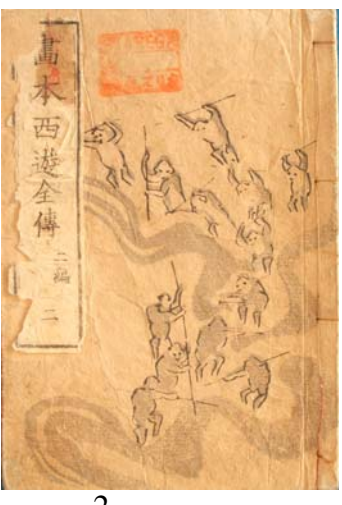 畫本西遊全傳
二編
二
2